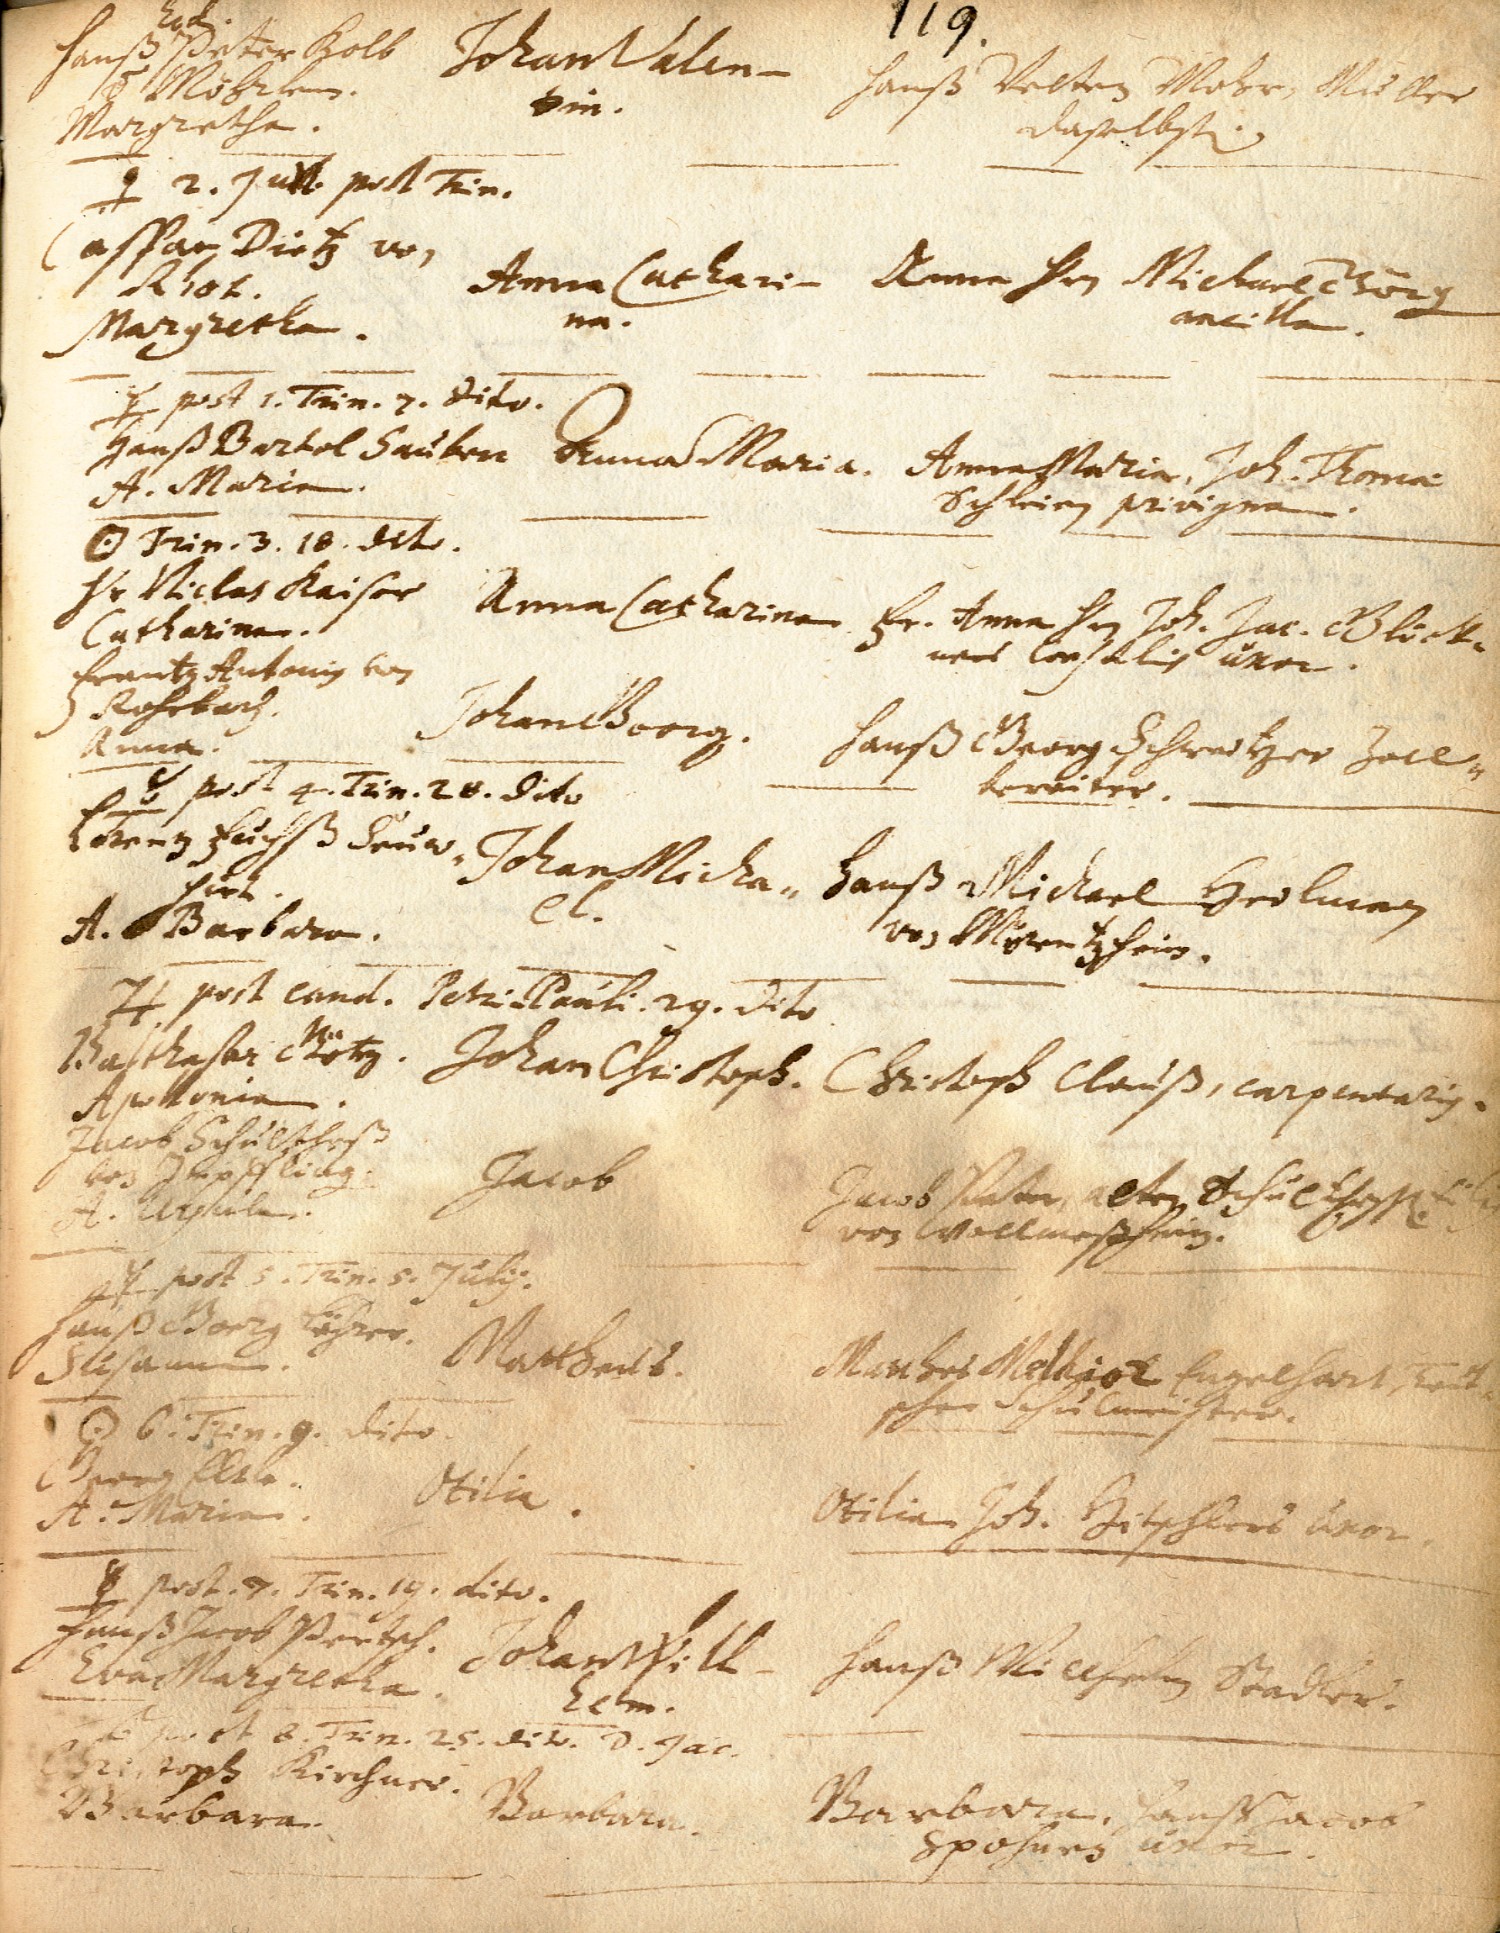 119.
Hanß Peter Kolb
Margretha.
Johan Valen-
tin.
Hanß Velten Mohr, Müller
daselbst.
♀ 2. Jun. post Trin.
Caspar Dietz von
Rhot.
Margretha.
Anna Cathari-
na.
Anna Hrn Michael Görg
ancilla.
post 1. Trin. 7. dito.
Hanß Bartol Sauter
A. Maria.
Anna Maria.
Anna Maria, Joh. Thomæ
Schlein privigna.
☉ Trin. 3. 18. dito.
Hr Niclas Kaiser
Catharina.
Anna Catharina
Fr. Anna Hrn Joh. Jac. Glöck-
ners Consulis uxor.
Frantz Antonij von
Rohrbach.
Anna.
Johan Georg.
Hanß Georg Schweitzer Zoll-
bereiter.
☿ post 4. Trin. 28. dito
Lorentz Fuchß Seuw-
hirt.
A. Barbara.
Johan Micha-
el.
Hanß Michael Heilman
von Mörentzheim.
♃ post cand. Petri Pauli. 29. dito
Balthasar Götz.
Apollonia.
Johan Christoph.
Christoph Clauß, carpentarig.
Jacob Schultheß
von Impfling.
A. Ursula.
Jacob
Jacob alten Schultheß
von Wollmeßheim.
post 5. Trin. 5. Julij.
Hanß Georg
Susanna.
Mattheus.
Mattheß Melchior Engelhart, teüt-
scher Schulmeister.
☉ 6. Trin. 9. dito.
Georg
A. Maria.
Otilia.
Otilia Joh. uxor.
☿ post. 7. Trin. 19. dito.
Hanß Jacob Pertsch.
Eva Margretha.
Johan Wilh-
helm.
Hanß Wilhelm Stadler.
post 8. Trin. 25. dito. D. Jac.
Christoph Kirchner.
Barbara.
Barbara.
Barbara, Hanß Jacob
Spohnen uxor.